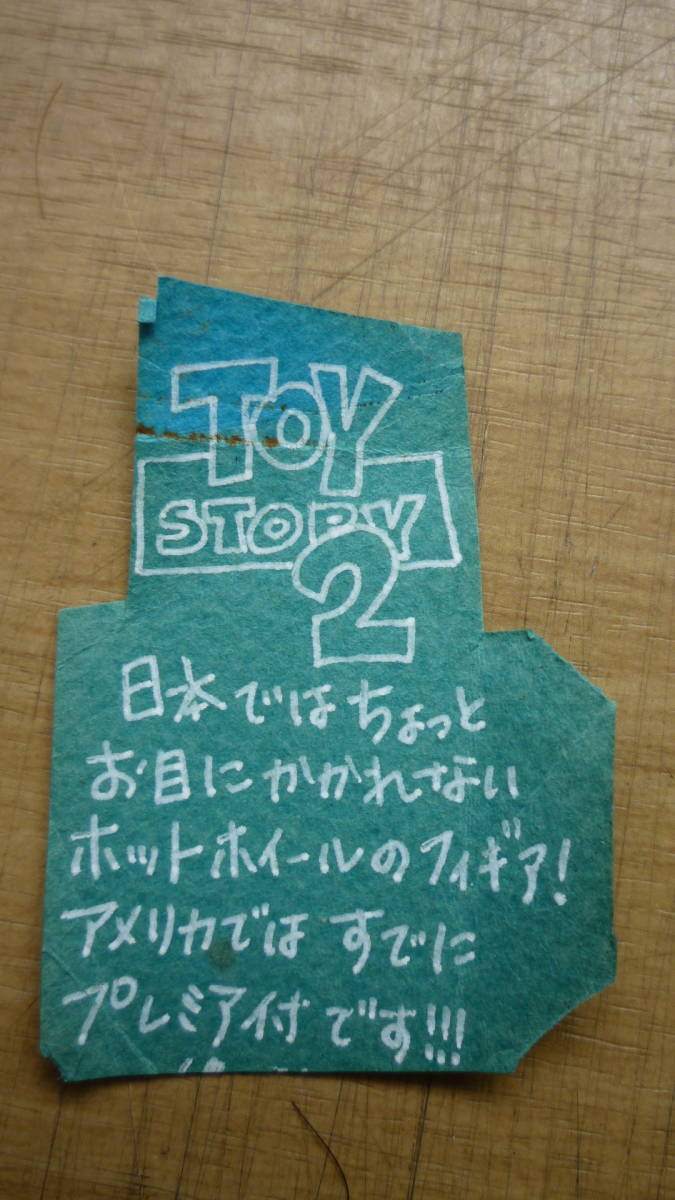 TOY
STORY
2
日本ではちょっと
お目にかかれない
ホットホイールのフィギア!
アメリカでは すでに
プレミア付です!!!